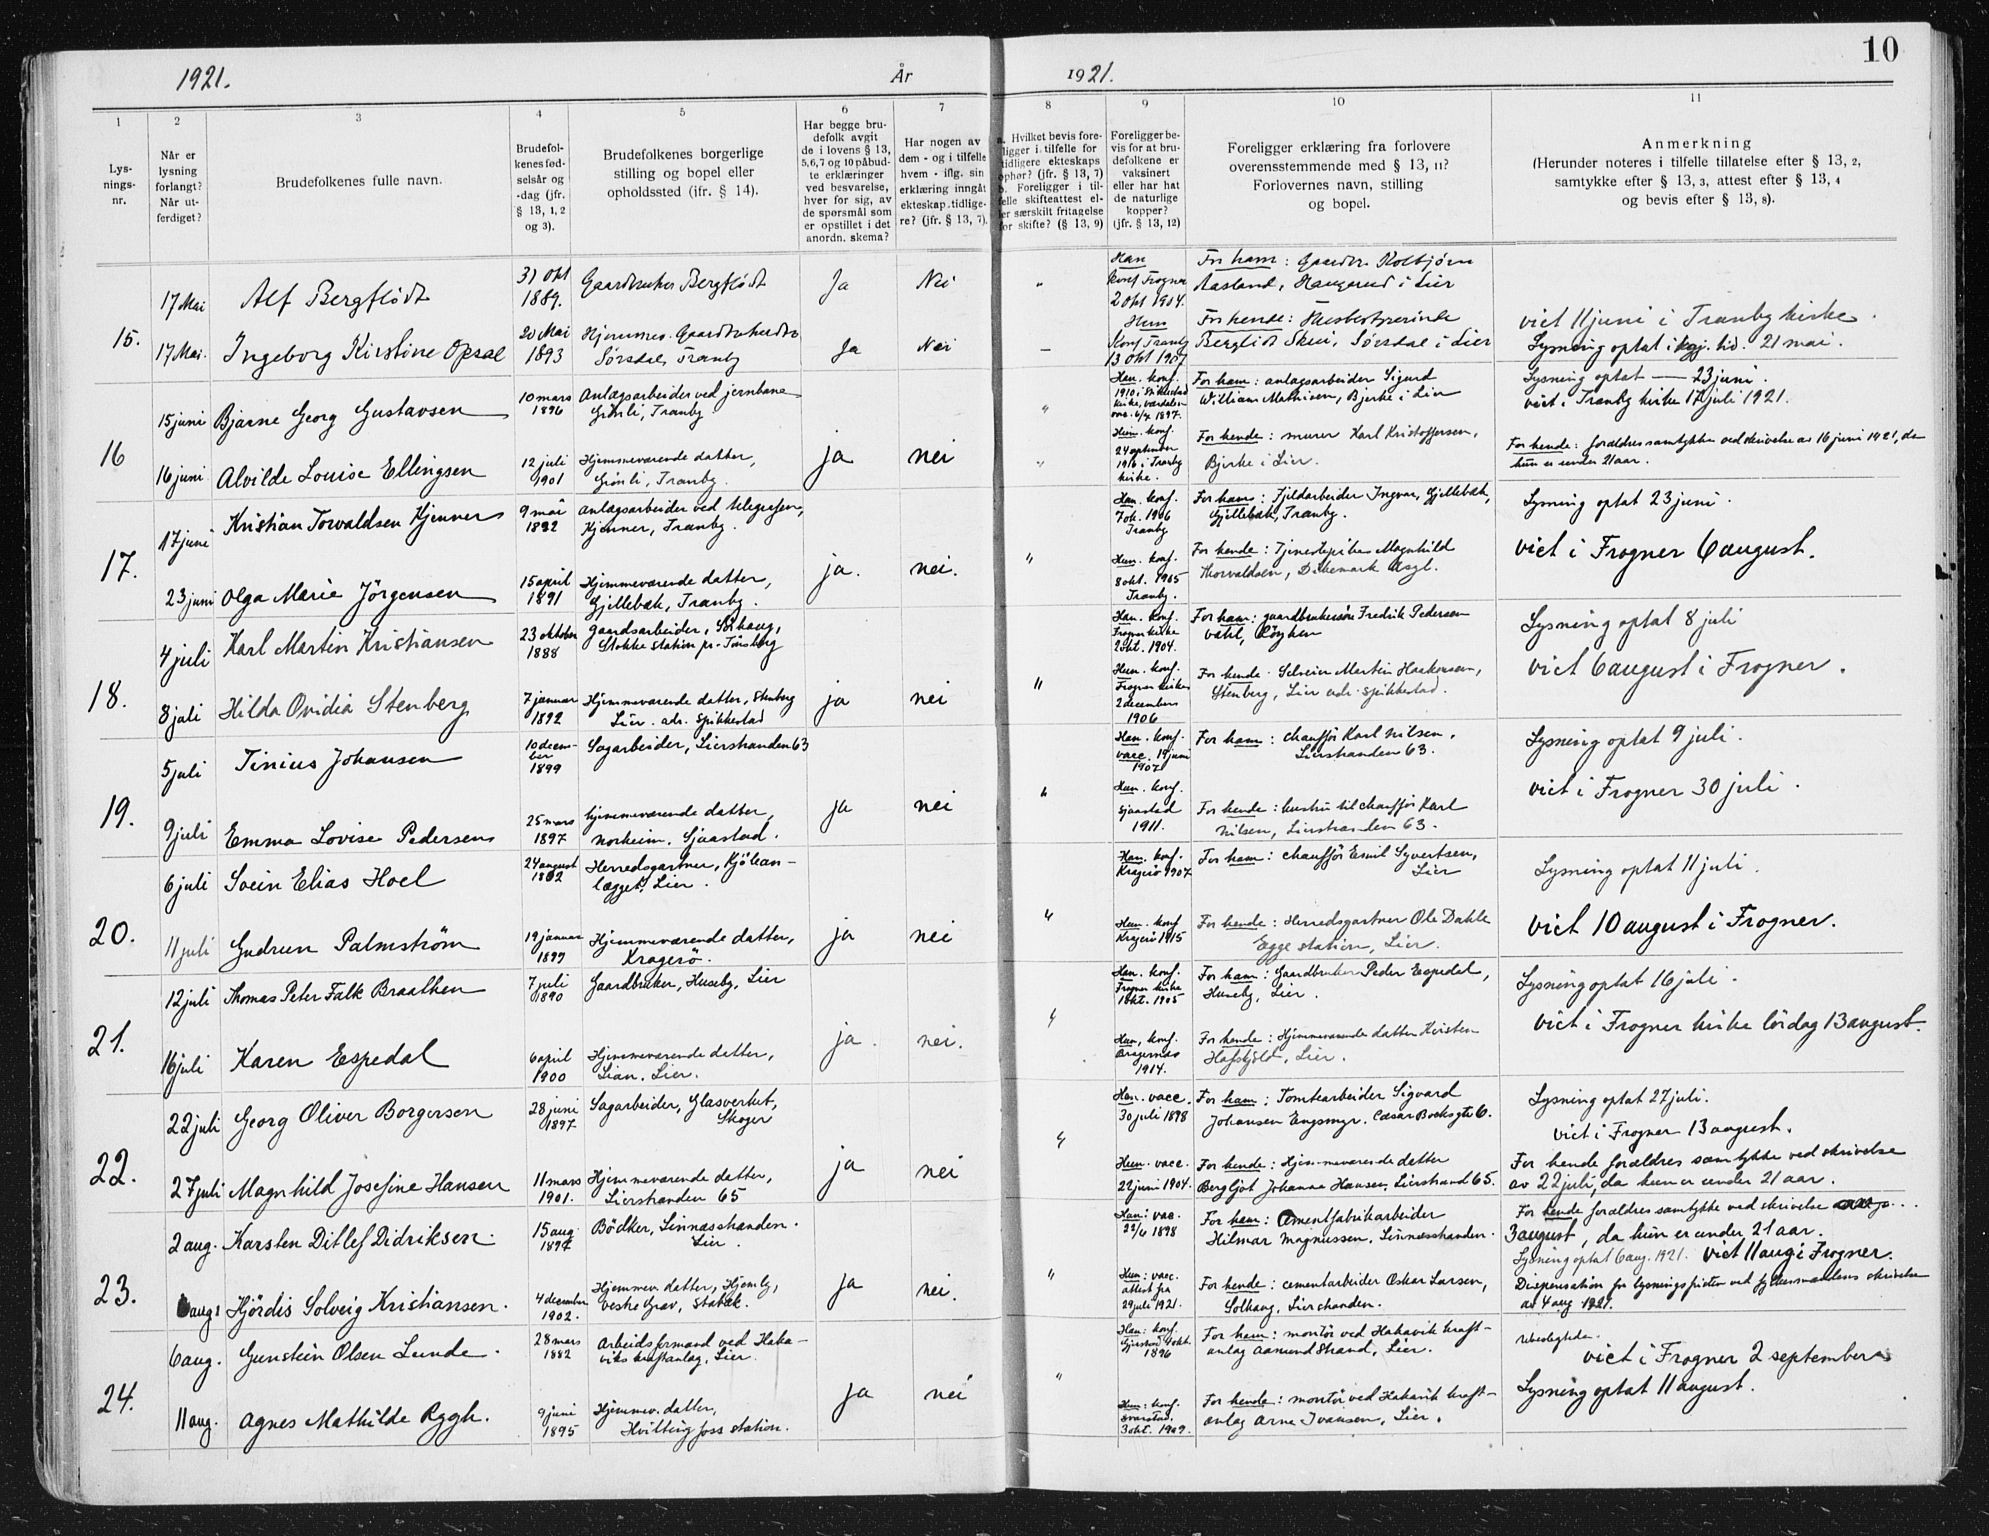 10
1921.
År
1921.
1
2
3
4
5
6
7
8
9
10
11
Lys-
nings-
nr.
Når er
lysning
forlangt?
Når ut-
ferdiget?
Brudefolkenes fulle navn.
Brudefol-
kenes fød-
selsår og
-dag (jfr.
§ 13, 1, 2
og 3).
Brudefolkenes borgerlige
stilling og bopel eller
opholdssted (ifr. § 14).
Har begge bru-
defolk avgit
de i lovens § 13,
5,6,7 og 10 påbud-
te erklæringer
ved besvarelse,
hver for sig, av
de spørsmål som
er opstillet i det
anordn. skema?
Har nogen av
dem - og i tilfelle
hvem - iflg. sin
erklæring inngåt
ekteskap tidlige-
re? (jfr. § 13, 7).
a. Hvilket bevis fore-
ligger i tilfelle for
tidligere ekteskaps
ophør? (jfr. § 13, 7)
b. Foreligger i til-
felle skifteattest el-
ler særskilt fritagelse
for skifte? (§ 13, 9)
Foreligger be-
vis for at bru-
defolkene er
vaksinert
eller har hat
de naturlige
kopper?
(jfr. § 13, 12)
Foreligger erklæring fra forlovere
overensstemmende med § 13, 11?
Forlovernes navn, stilling
og bopel.
Anmerkning
(Herunder noteres i tilfelle tillatelse efter § 13, 2,
samtykke efter § 13, 3, attest efter § 13, 4
og bevis efter § 13, 8).
15.
17 Mai
Alf Bergflödt
31 Okt
1889.
Gaardbruker Bergflödt
Ja
Nei
"
Han
konf Frogner
2 Okt 1904.
For ham: Gaardbr. Kolbjørn
Aasland, Haugerud i Lier
17 Mai.
Ingeborg Kirstine Opsal
20 Mai
1893
Sørsdal, Tranby
Ja
Nei
–
Konf Tranby
13 Okt 1907
For hende:
Bergliot Skui, Sørsdal i Lier
viet 11 juni i Tranby kirke.
Lysning optat i kgj. tid. 21 mai.
16
15 juni
Bjarne Georg Gustavsen
10 mars
1896
Anlægsarbeider ved jernbane
Grönli, Tranby.
"
Han. konf.
1910 i
For ham: anlægsarbeider Sigurd
William Mathisen, Bjerke i Lier
Lysning optat — 23 juni.
viet i Tranby kirke 17 juli 1921.
16 juni
Alvilde Louise Ellingsen
12 juli
1901
Hjemmeværende datter,
Grönli, Tranby.
ja
nei
"
Hun. konf.
24 september
1916 i Tranby
kirke.
For hende: murer Karl Kristoffersen,
Bjerke i Lier.
For hende: forældres samtykke ved skrivelse av 16 juni 1921, da
hun er under 21 aar.
17.
17 juni
Kristian Torvaldsen Kjenner
9 mai
1892
anlægsarbeider ved telegrafen,
Kjenner, Tranby.
Han. konf.
7 ok. 1906
Tranby
For ham: Fjeldarbeider Ingvar Gjellebæk,
Gjellebæk, Tranby.
Lysning optat 23 juni.
viet i Frogner 6 august.
23 juni
Olga Marie Jörgensen
15 april
1891
Hjemmeværende datter,
Gjellebæk, Tranby.
ja.
nei.
"
Hun. konf.
8 okt. 1905
Tranby.
For hende: Tjenestepike Magnhild
Thorvaldsen, Dikemark Asyl.
18.
4 juli
Karl Martin Kristiansen
23 oktober
1888
gaardsarbeider, Sörhaug,
Stokke station pr. Tönsberg
Han. konf.
Frogner kirke
2 okt. 1904.
For ham: gaardbrukersön Fredrik Pedersen
Vahl, Röyken
Lysning optat 8 juli
viet 6 august i Frogner.
8 juli
Hilda Ovidia Stenberg
7 januar
1892
Hjemmeværende datter, Stenberg
Lier. adr. Spikkestad
ja
nei
"
Hun. konf.
Frogner kirke
2 december
1906
For hende. Selveier Martin Haakensen,
Stenberg, Lier adr. Spikkestad.
19.
5 juli
Tinius Johansen
10 decem-
ber
1899
Sagarbeider, Lierstranden 63
Han. konf.
vacc. 19 juni
1907
For ham: chauffør Karl Nilsen,
Lierstranden 63.
Lysning optat 9 juli.
viet i Frogner 30 juli.
9 juli
Emma Lovise Pedersen
25 mars
1897
hjemmeværende datter,
Norheim, Sjaastad.
ja
nei
"
Hun. konf.
Sjaastad
1911.
For hende: hustru til chauffør Karl
Nilsen, Lierstranden 63.
20.
6 juli
Svein Elias Hoel
24 august
1892
Herredsgartner, Kjölean-
lægget, Lier.
Han. konf.
Kragerö 1907
For ham: chauffør Emil Syvertsen,
Lier
Lysning optat 11 juli.
viet 10 august i Frogner.
11 juli
Gudrun Palmström
19 januar
1899
Hjemmeværende datter,
Kragerö.
ja
nei
"
Hun. konf
Kragerö 1915
For hende: Herredsgartner Ole Dahle
Egge station, Lier.
21.
12 juli
Thomas Peter Falk Braathen
7 juli
1890
Gaardbruker, Huseby, Lier
Han. konf.
Frogner kirke
1 okt. 1905
For ham: Gaardbruker Peder Espedal,
Huseby, Lier.
Lysning optat 16 juli.
viet i Frogner kirke lördag 13 august.
16 juli
Karen Espedal
6 april
1900
Hjemmeværende datter,
Lian. Lier.
ja.
nei.
"
Hun, konf.
Bragernæs
1914.
For hende: Hjemmeværende datter Kristen
Hafskjold, Lier.
22.
22 juli
Georg Oliver Borgersen
28 juni
1897.
Sagarbeider, Glasverket,
Skoger
Han. vacc.
30 juli 1898
For ham: Tomtearbeider Sigvard
Johansen Engsmyr. Cæsar Boeks gt 6.
Lysning optat 27 juli.
viet i Frogner 13 august.
27 juli
Magnhild Josefine Hansen
11 mars
1901.
Hjemmeværende datter,
Lierstranden 65
ja
nei
"
Hun. vacc.
22 juni 1904.
For hende: Hjemmeværende datter
Bergljot Johanna Hansen, Lierstrand 65.
For hende forældres samtykke ved skrivelse
av 22 juli, da hun er under 21 aar.
23.
2 aug.
Karsten Ditlef Didriksen.
15 aug
1897
Bödker, Linnæsstranden.
Lier.
Han: vac.
22/6 1898
For ham: Cementfabrikarbeider
Hilmar Magnussen, Linnæsstranden.
For hende forældres samtykke ved skrivelse
3 august, da hun er under 21 aar.
Lysning optat 6 aug. 1921. viet 11 aug i Frogner.
6 aug
Hjördis Solveig Kristiansen.
4 december
1902.
Hjemmev. datter, Hjemly,
Vestre Grav, Stabæk.
ja
nei.
"
Hun: vacc.
attest fra
29 juli 1921.
For hende: cementarbeider Oskar Larsen,
Solhaug, Lierstranden.
Dispensation for lysningsfristen ved fylkesmandens skrivelse
av 4 aug 1921.
24.
6 aug.
Gunstein Olsen Lunde.
28 mars
1882
Arbeidsformand ved Haka-
viks kraftanlæg, Lier.
Han: konf.
1896
For ham: montör ved Hakavik kraft-
anlæg Aamund Strand, Lier.
ubeslegtede.
viet i Frogner 2 september
11 aug.
Agnes Mathilde Rygh.
9 juni
1895
Hjemmev. datter,
station.
ja
nei
"
Hun: konf.
Svarstad.
3 okt. 1909.
For hende: montör ved Hakavik kraft-
anlæg Arne Ivansen, Lier.
Lysning optat 11 august.